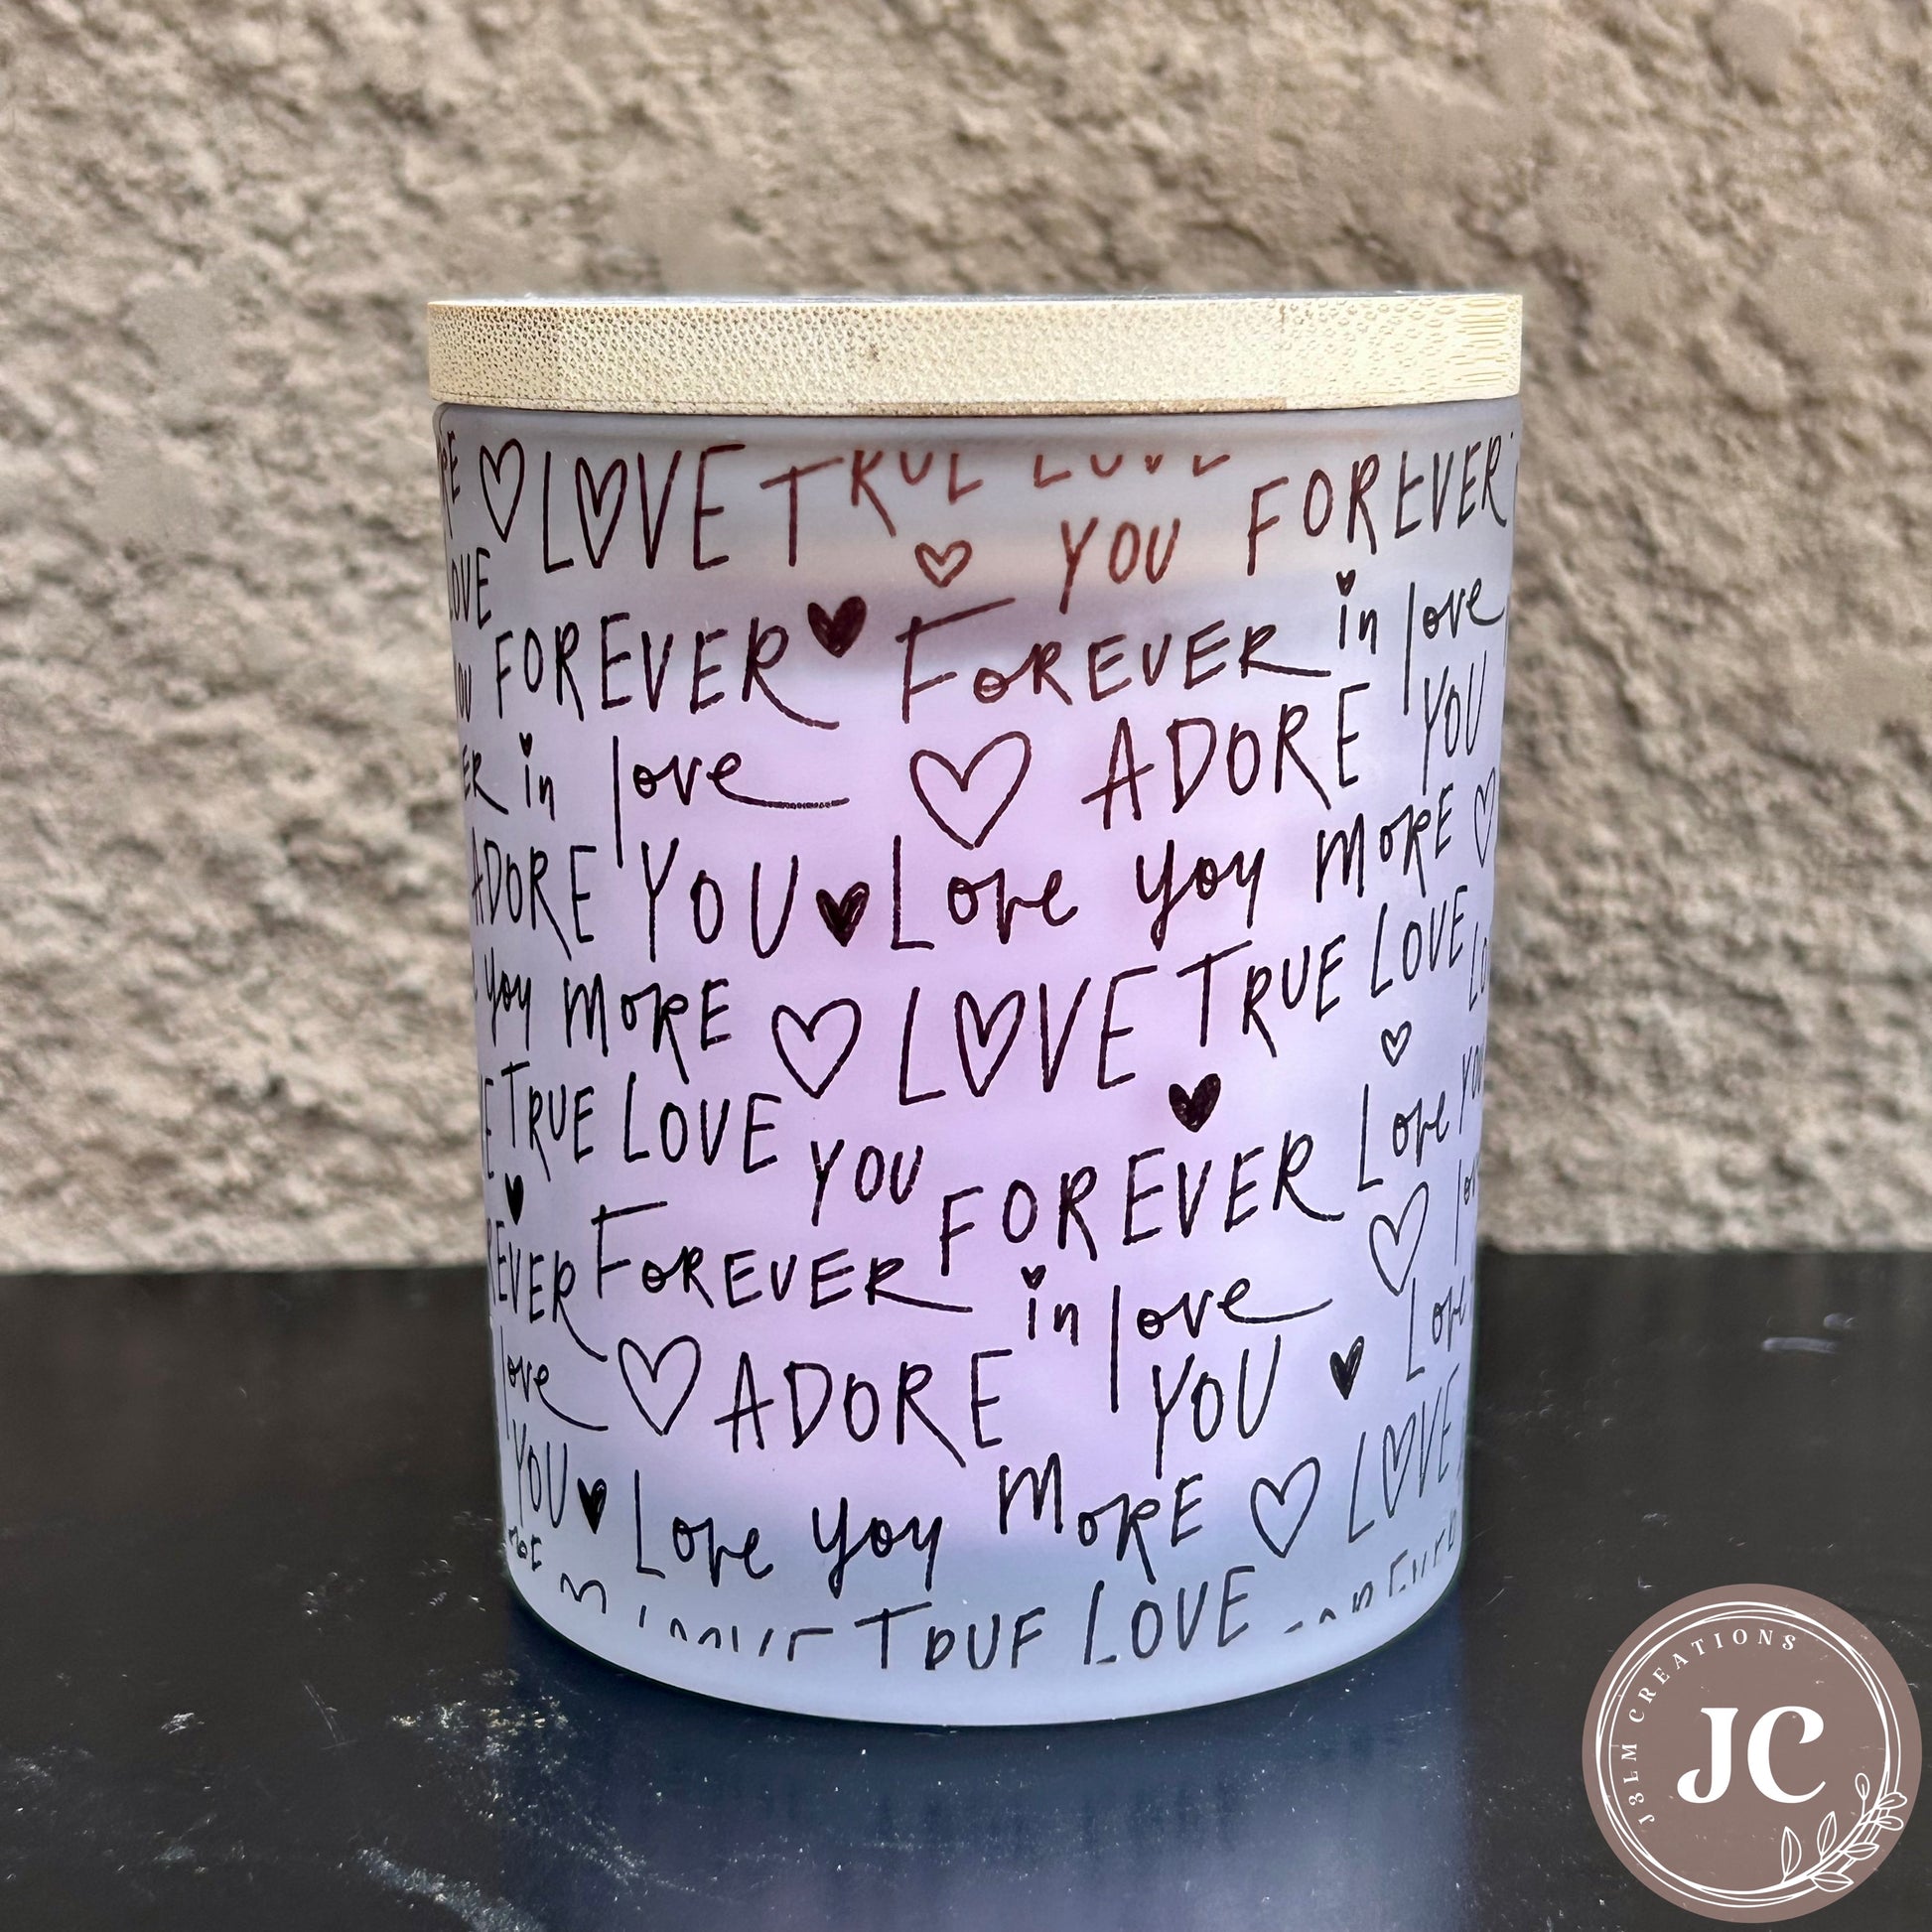 LOVE TRUE LOVE FOREVER
LOVE YOU
FOREVER FOREVER in love
YOU
in love ADORE YOU
ADORE YOU Love you MORE
you MORE LOVE TRUE LOVE
TRUE LOVE YOU FOREVER Love you
FOREVER in love
love ADORE YOU Love
YOU Love you MORE LOVE
TRUE LOVE
J3LM CREATIONS
JC